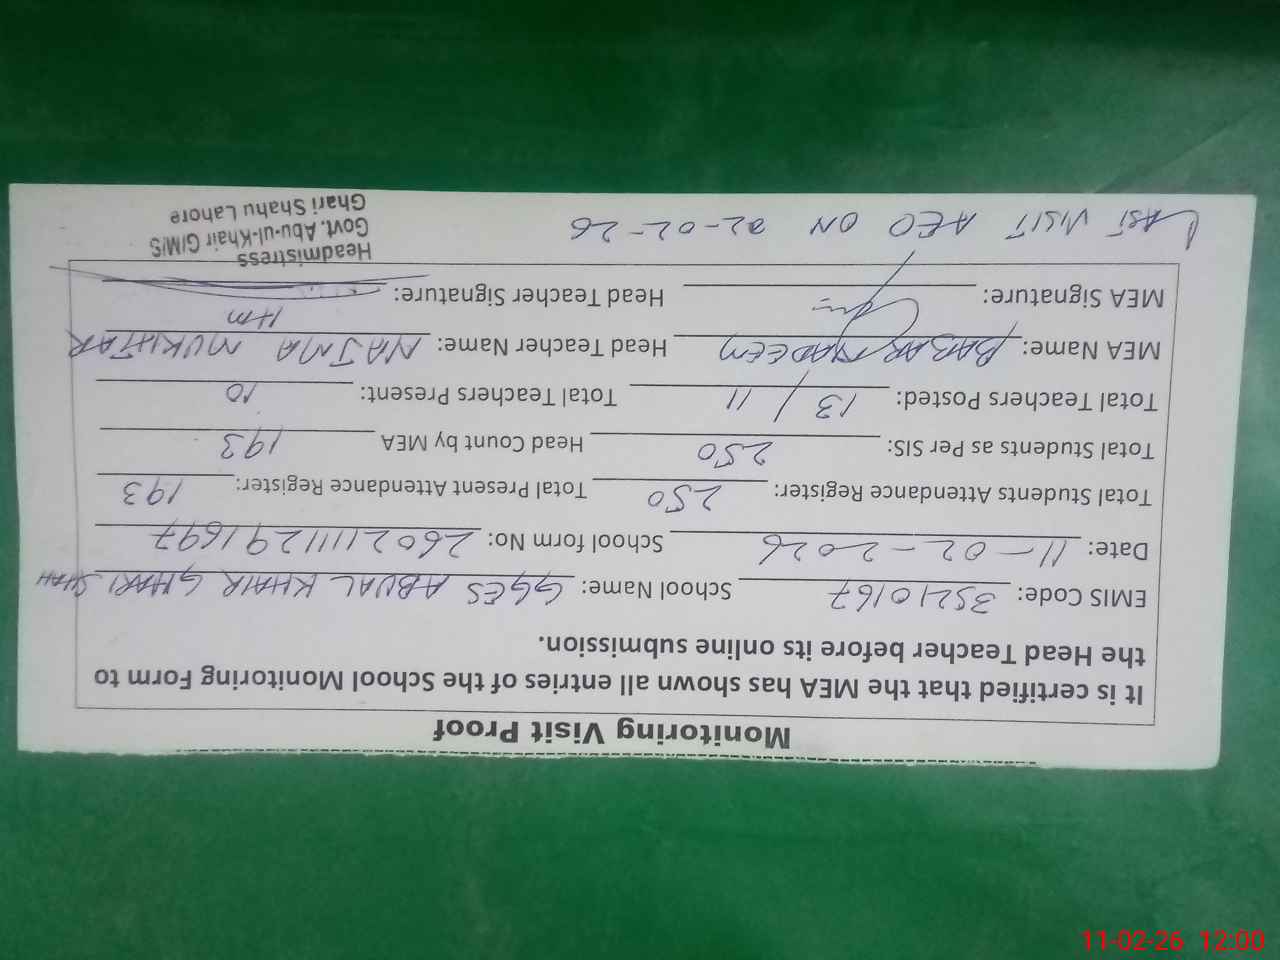 Monitoring Visit Proof
It is certified that the MEA has shown all entries of the School Monitoring Form to
the Head Teacher before its online submission.
EMIS Code: 35210167 School Name: GGES ABUAL KHAIR GHARI SHAH
Date: 11-02-2026 School form No: 260211111291697
Total Students Attendance Register: 250 Total Present Attendance Register: 193
Total Students as Per SIS: 250 Head Count by MEA 193
Total Teachers Posted: 13 / 11 Total Teachers Present: 10
MEA Name: BABAR NADEEM Head Teacher Name: NAJMA MUKHTAR
HM
MEA Signature: Head Teacher Signature:
Headmistress
Govt. Abu-ul-Khair G/M/S
Ghari Shahu Lahore
LAST VISIT AEO ON 02-02-26
11-02-26 12:00